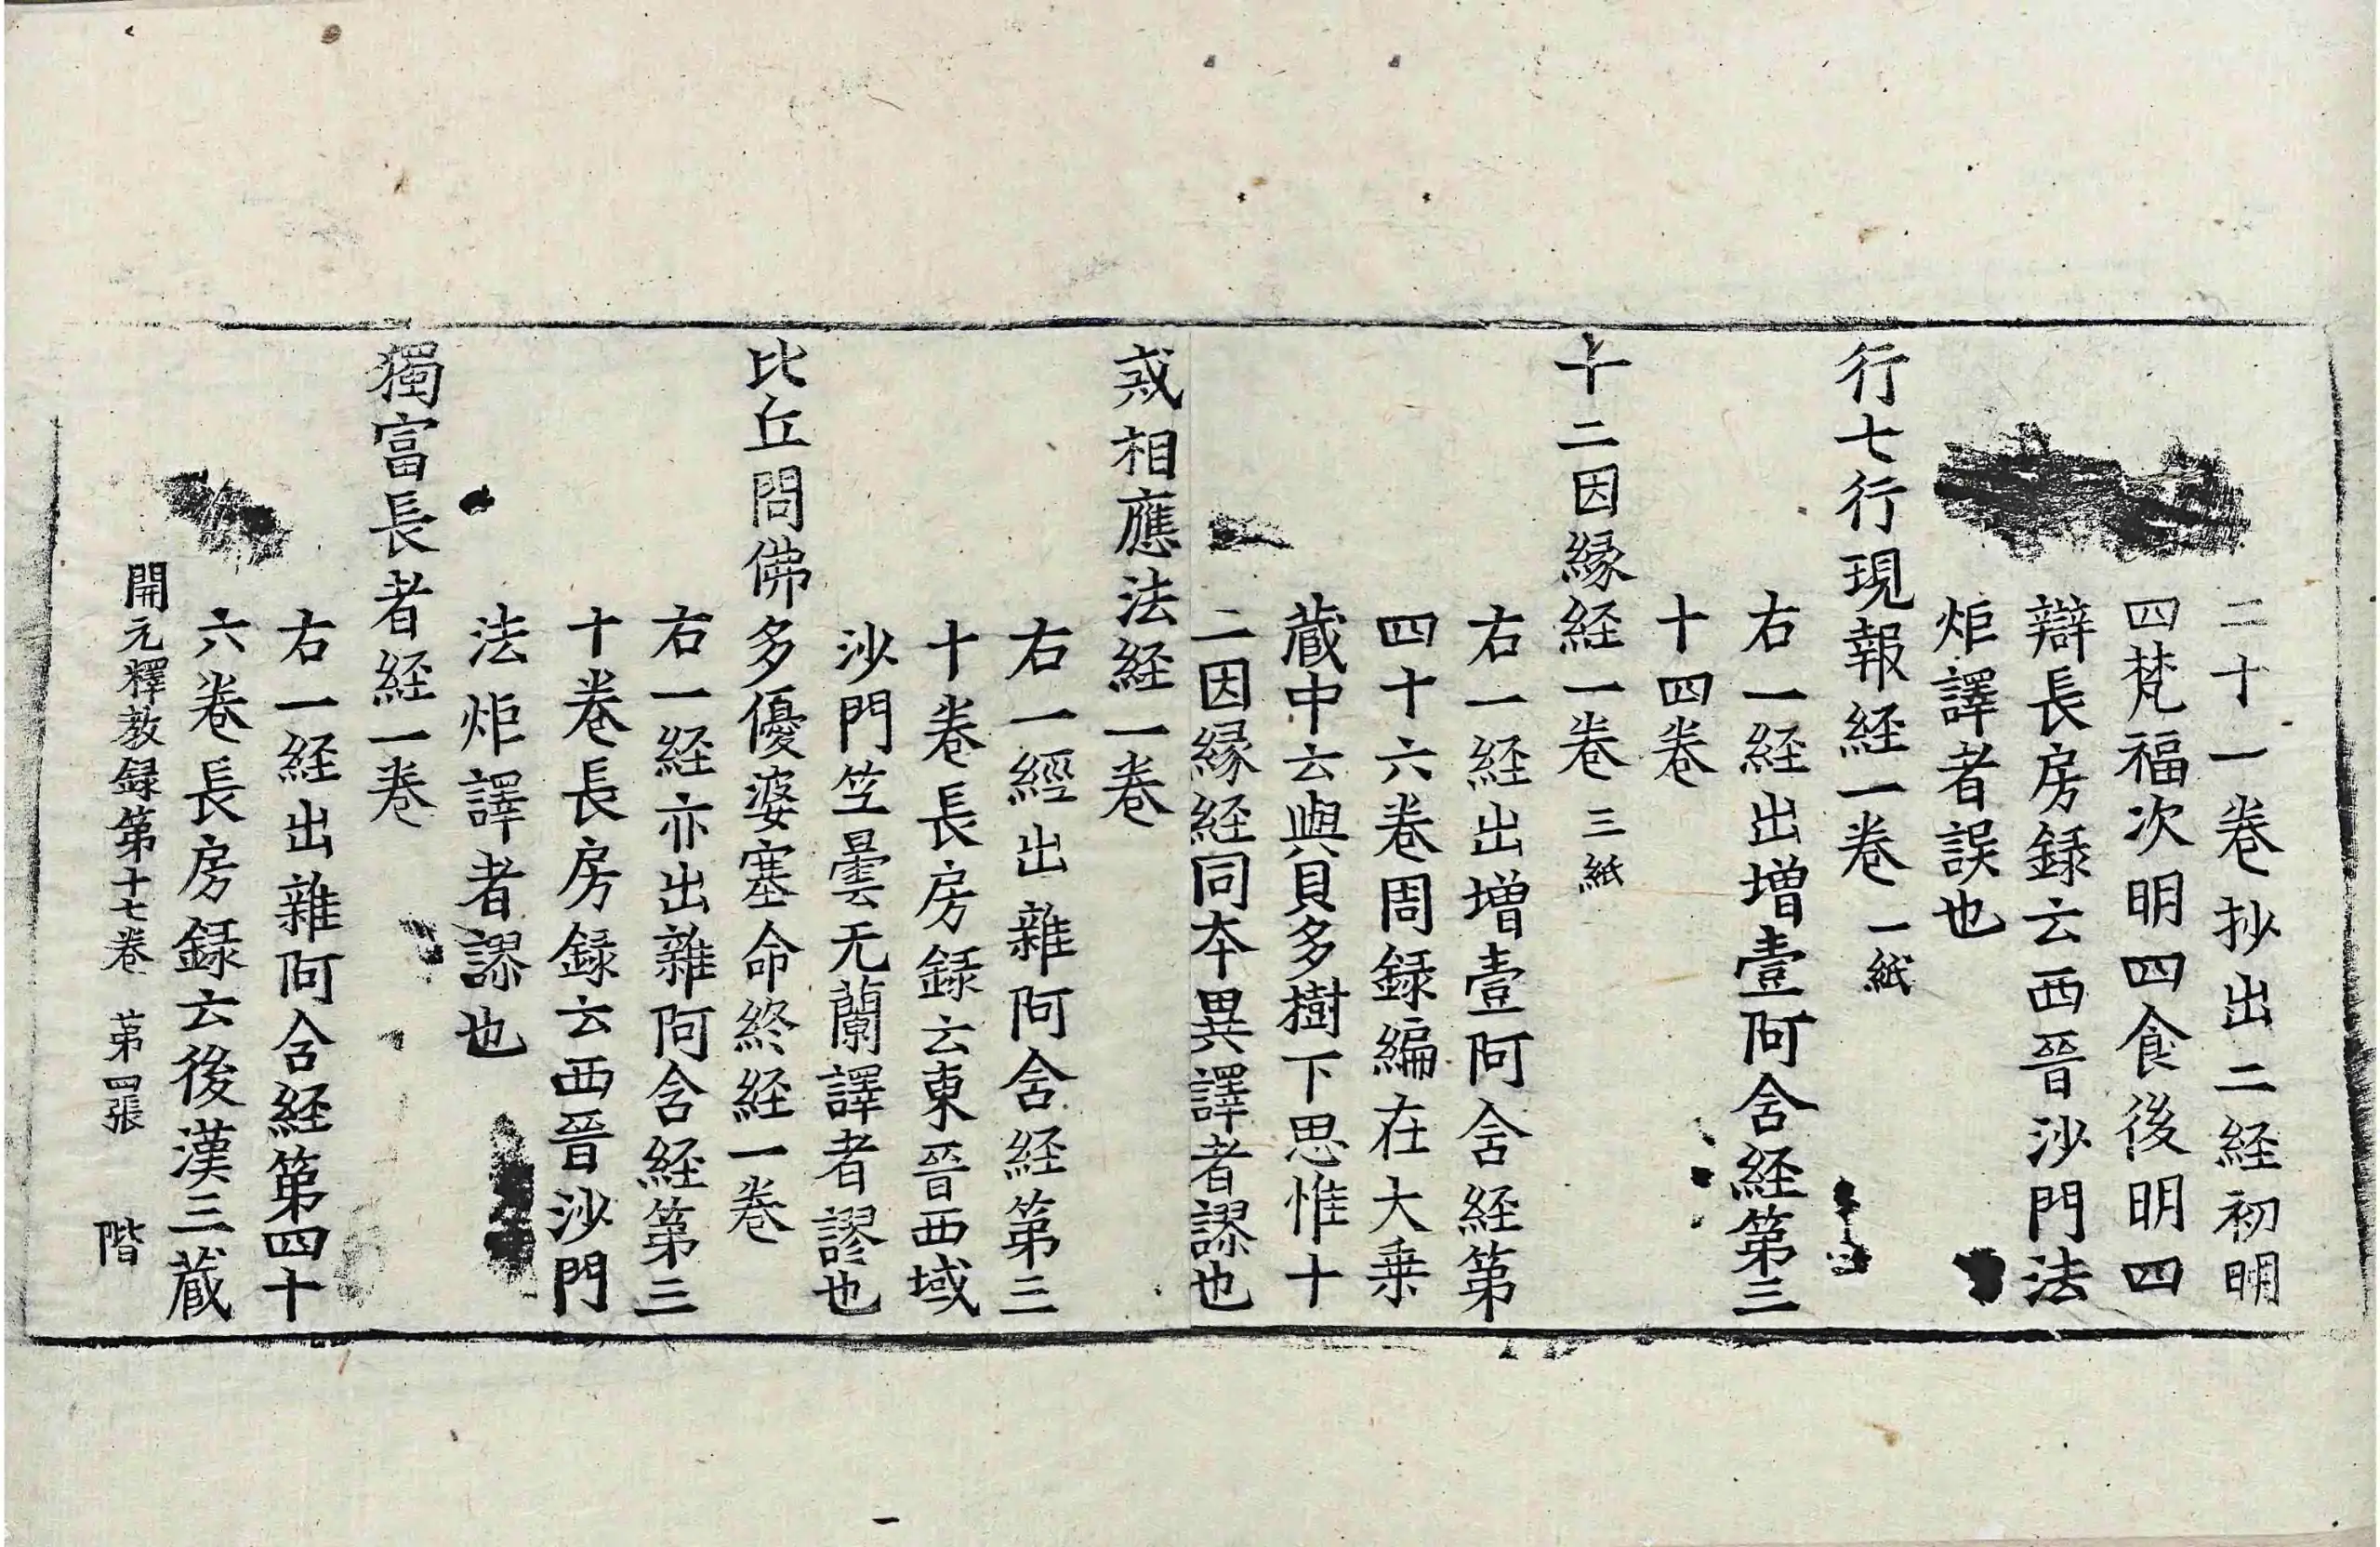 二十一卷抄出二経初明
四梵福次明四食後明四
辯長房録云西晉沙門法
炬譯者誤也
行七行現報経一卷 一紙
右一経出増壹阿含経第三
十四卷
十二因縁経一卷 三紙
右一経出増壹阿含経第
四十六卷周録編在大乗
蔵中云與貝多樹下思惟十
二因縁経同夲異譯者謬也
惑相應法経一卷
右一經出雜阿含経第三
十卷長房録云東晉西域
沙門竺曇无蘭譯者謬也
比丘問佛多優婆塞命終経一卷
右一経亦出雜阿含経第三
十卷長房録云西晉沙門
法炬譯者謬也
獨富長者経一卷
右一経出雜阿含経第四十
六卷長房録云後漢三蔵
開元釋教録第十七卷 第四張 階